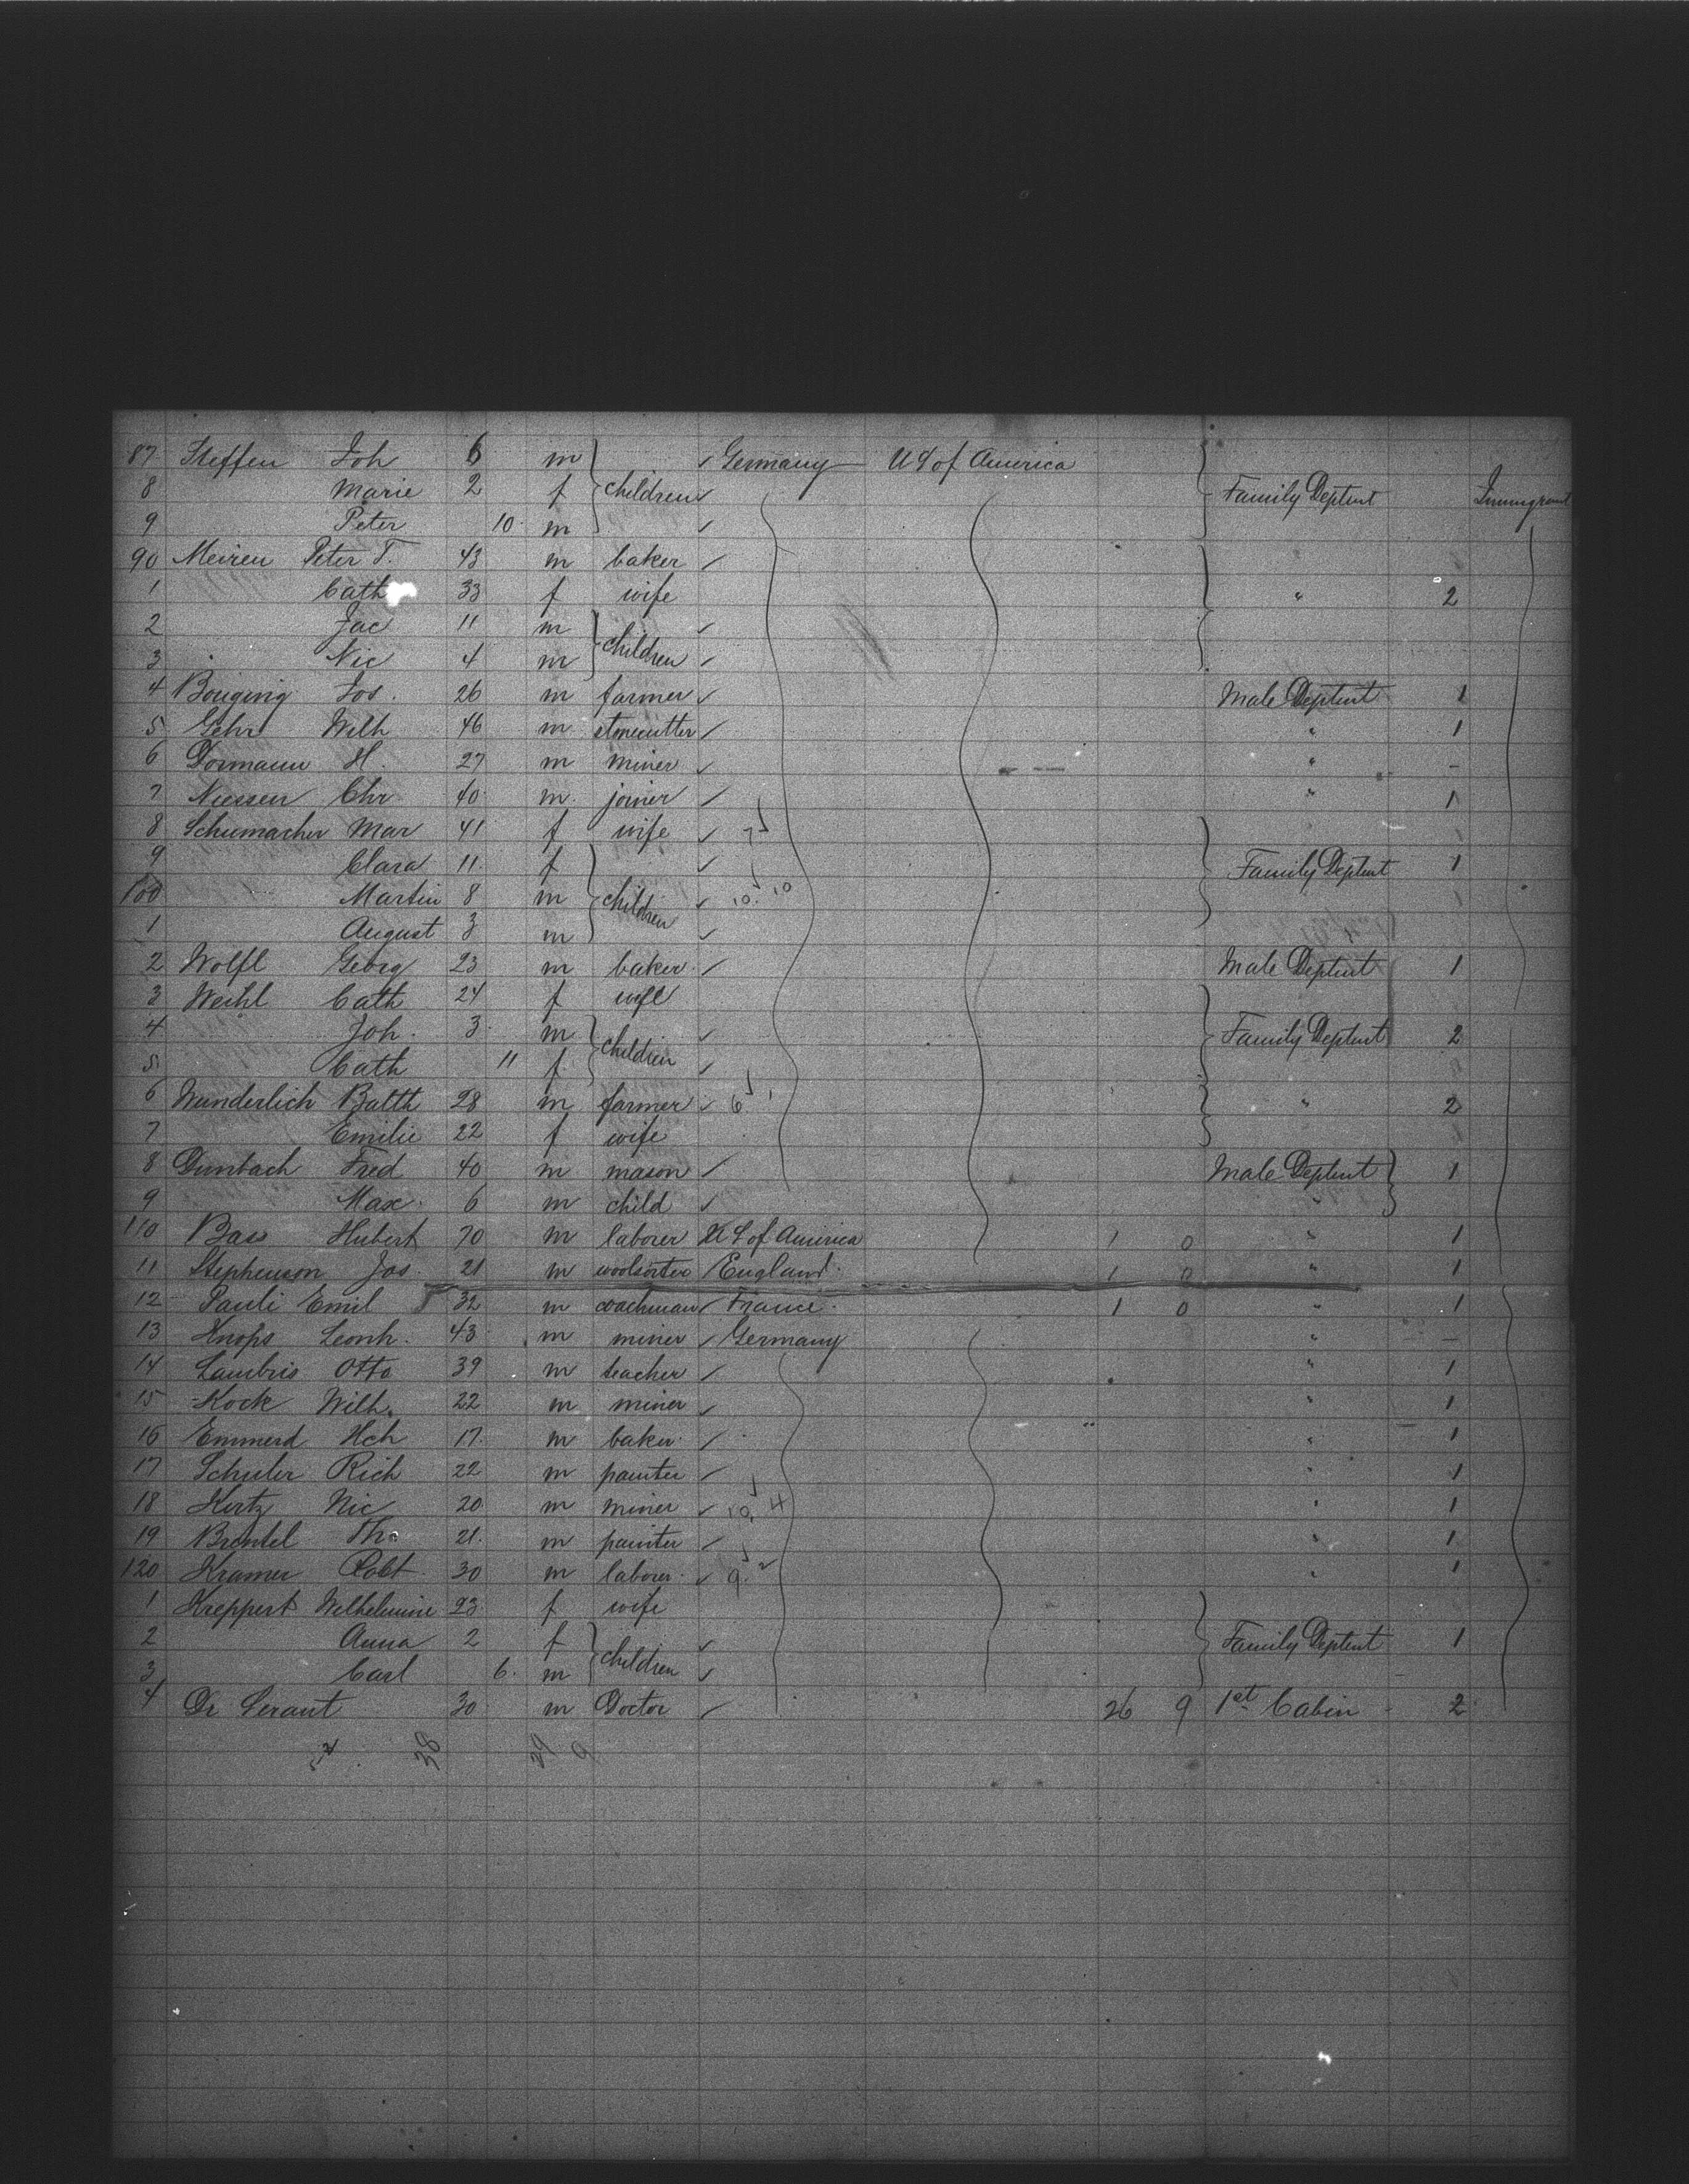 87 Steffen Joh 6 m Germany U S of America
8 Marie 2 f children Family Deptmt Immigrant
9 Peter 10 m
90 Meiren Peter T. 43 m baker
1 Cath 33 f wife " 2
2 Jac 11 m
3 Nic 4 m children
4 Jos. 26 m farmer Male Deptmt 1
5 Gehr Wilh 46 m stonecutter " 1
6 Dormann H. 27 m miner " -
7 Niessen Chr. 40 m joiner " 1
8 Schumacher Mar 41 f wife 7
9 Clara 11 f Family Deptmt 1
100 Martin 8 m children 10. 10
1 August 3 m
2 Wolfl Georg 23 m baker Male Deptmt 1
3 Weihl Cath 24 f wife
4 Joh. 3 m children Family Deptmt 2
5 Cath 11 f
6 Wunderlich Balth 28 m farmer 6 " 2
7 Emilie 22 f wife
8 Dumbach Fred 40 m mason Male Deptmt 1
9 Max 6 m child "
110 Bass Hubert 70 m laborer U S of America 1 0 " 1
11 Stephenson Jos. 21 m woolsorter England 1 0 " 1
12 Pauli Emil 32 m coachman France 1 0 " 1
13 Knops Leonh. 43 m miner Germany " -
14 Lambris Otto 39 m teacher " 1
15 Kock Wilh. 22 m miner " 1
16 Emmerd Hch 17 m baker " 1
17 Schuler Rich 22 m painter " 1
18 Kertz Nic 20 m miner 10. 4 " 1
19 Brentel Th. 21 m painter " 1
120 Kramer Robt 30 m laborer 9. 2 " 1
1 Kreppert Wilhelmine 23 f wife
2 Anna 2 f children Family Deptmt 1
3 Carl 6 m
4 Dr Serant 30 m Doctor 26 9 1st Cabin - 2